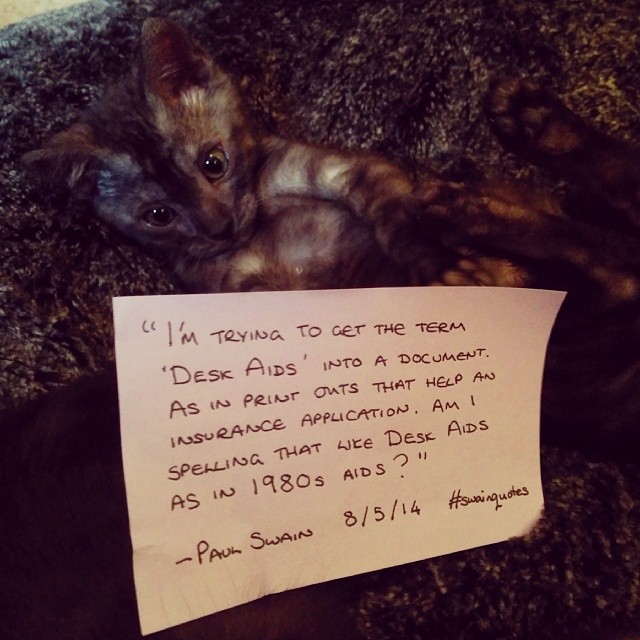 "I'M TRYING TO GET THE TERM
'DESK AIDS' INTO A DOCUMENT.
AS IN PRINT OUTS THAT HELP AN
INSURANCE APPLICATION. AM I
SPELLING THAT LIKE DESK AIDS
AS IN 1980s AIDS?"
-PAUL SWAIN 8/5/14 #swainquotes